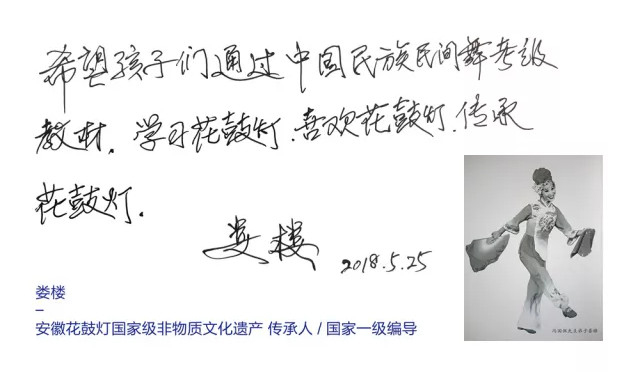 希望孩子们通过中国民族民间舞考级
教材，学习花鼓灯、喜欢花鼓灯、传承
花鼓灯。
娄楼 2018.5.25
娄楼
–
安徽花鼓灯国家级非物质文化遗产 传承人 / 国家一级编导